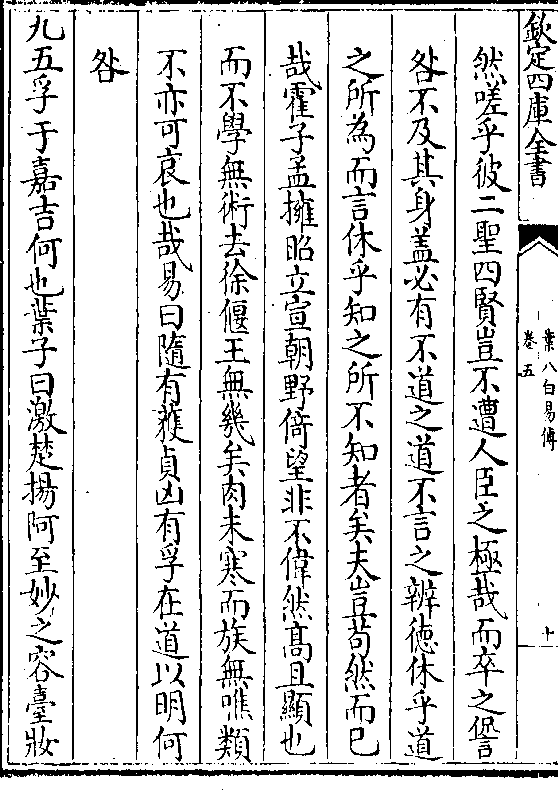 欽定四庫全書
葉八白易傳
卷五
十
然嗟乎彼二聖四賢豈不遭人臣之極哉而卒之愆
咎不及其身蓋必有不道之道不言之辨德休乎道
之所為而言休乎知之所不知者矣夫豈苟然而已
哉霍子孟擁昭立宣朝野倚望非不偉然髙且顯也
而不學無術去徐偃王無幾矣肉未寒而族無噍類
不亦可哀也哉易曰隨有獲貞凶有孚在道以明何
咎
九五孚于嘉吉何也葉子曰激楚揚阿至妙之容臺妝